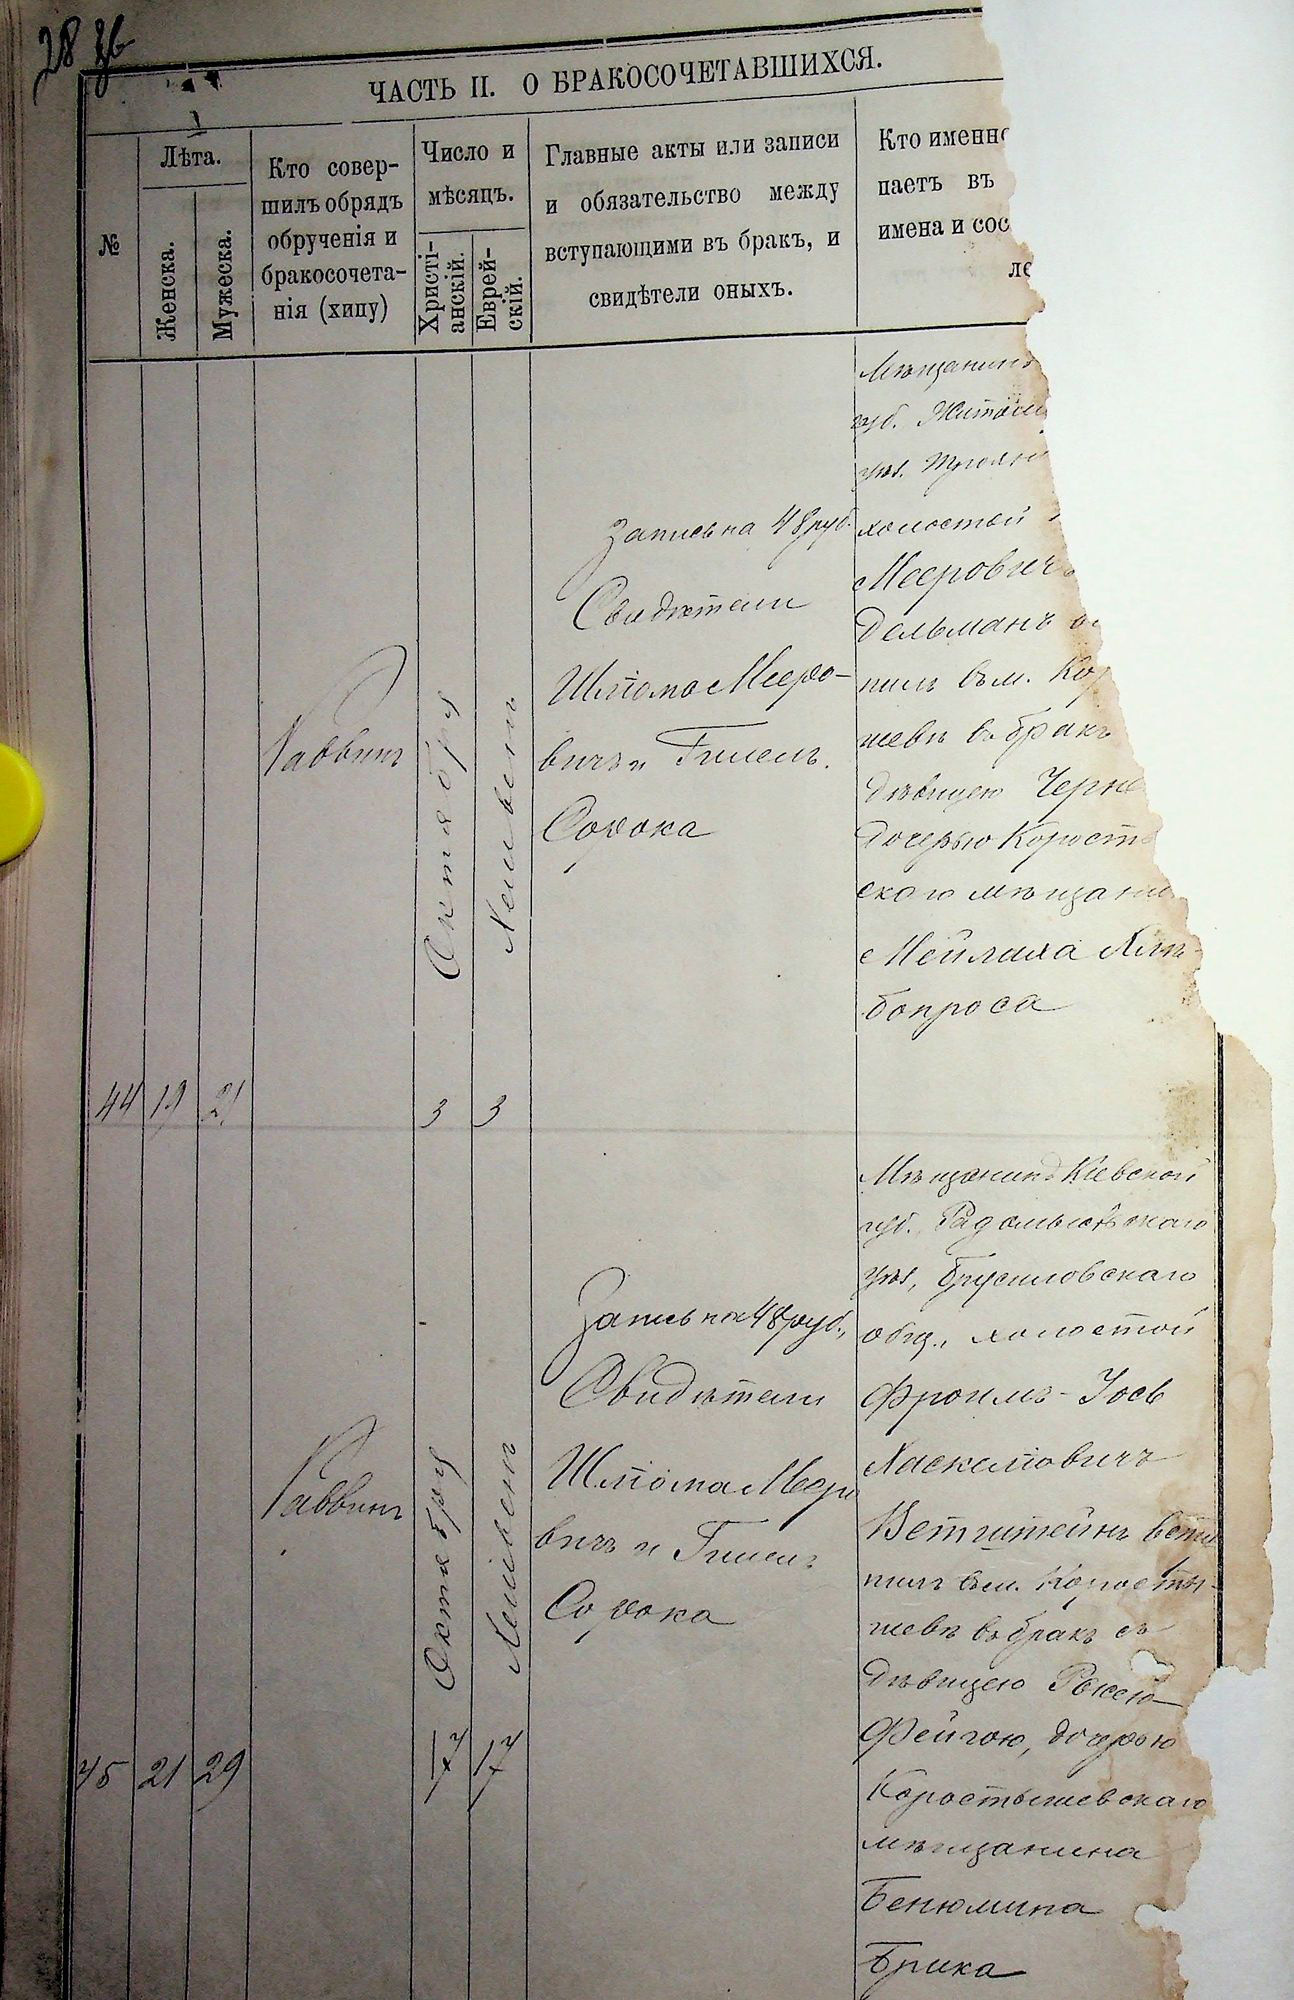 28 об
ЧАСТЬ II. О БРАКОСОЧЕТАВШИХСЯ.
№
Лѣта.
Женска.
Мужеска.
Кто совер-
шилъ обрядъ
обрученія и
бракосочета-
нія (хипу)
Число и
мѣсяцъ.
Христі-
анскій.
Еврей-
скій.
Главные акты или записи
и обязательство между
вступающими въ бракъ, и
свидѣтели оныхъ.
Кто именно
паетъ въ
имена и сос
ле
44
19
21
Раввинъ
Октября
3
3
Запись на 48 руб.
Свидѣтели
Шлiома Мееро-
вичъ и Гилель
Сорока
Мѣщанинъ
губ. Житом
уѣз. Троян
холостой
Мееровичъ
дельманъ
пилъ въ м. Кор
шевѣ въ бракъ
дѣвицею Черне
дочерью Корост
скаго мѣщани
Мейлаха Хлѣ-
бопроса
45
21
29
Раввинъ
Октября
17
17
Запись на 48 руб.,
Свидѣтели
Шлiома Меера
вичъ и Гилель
Сорока
Мѣщанинъ Кіевской
губ. Радомысльскаго
уѣз, Брусиловскаго
общ., холостой
Фроимъ-Іось
Хаскелiовичъ
Ветштейнъ всту
пилъ въ м. Коросты-
шевѣ въ бракъ съ
дѣвицею Рыксею
Фейгою, дочерью
Коростышевскаго
мѣщанина
Бенюмина
Брика